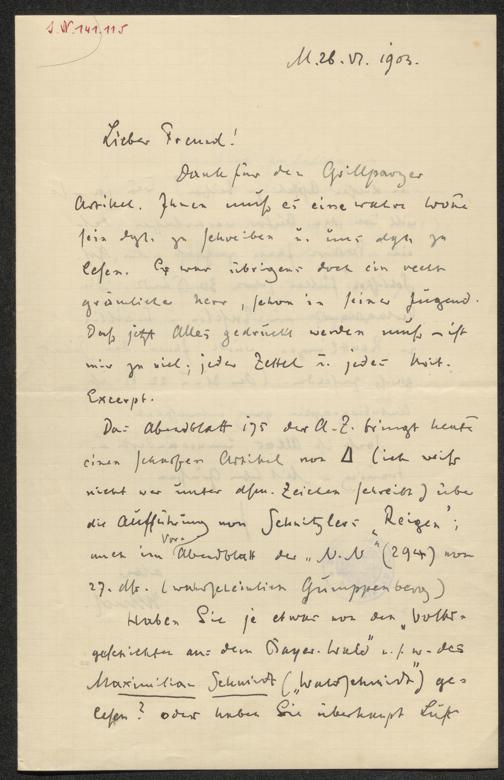 I.N. 141.115
M. 26. VI. 1903.
Lieber Freund!
Dank für den Grillparzer
Artikel. Ihnen muß es eine wahre Wonne
sein dgl. zu schreiben u. uns dgl. zu
lesen. Er war übrigens doch ein recht
grämlicher Herr, schon in seiner Jugend.
Daß jetzt Alles gedruckt werden muß – ist
mir zu viel; jeder Zettel u. jedes
Excerpt.
Das Abendblatt 175 der A.Z. bringt heute
einen scharfen Artikel von Δ (ich weiß
nicht wer unter dsm. Zeichen schreibt) über
die Aufführung von Schnitzlers "Reigen";
auch im Vor-Abendblatt der "N.N" (294) von
27. ds. (wahrscheinlich Gumppenberg)
Haben Sie je etwas von den "Volks-
geschichten aus dem Bayer. Wald" u.s.w. des
Maximilian Schmidt ("Waldschmidt") ge-
lesen? oder haben Sie überhaupt Lust